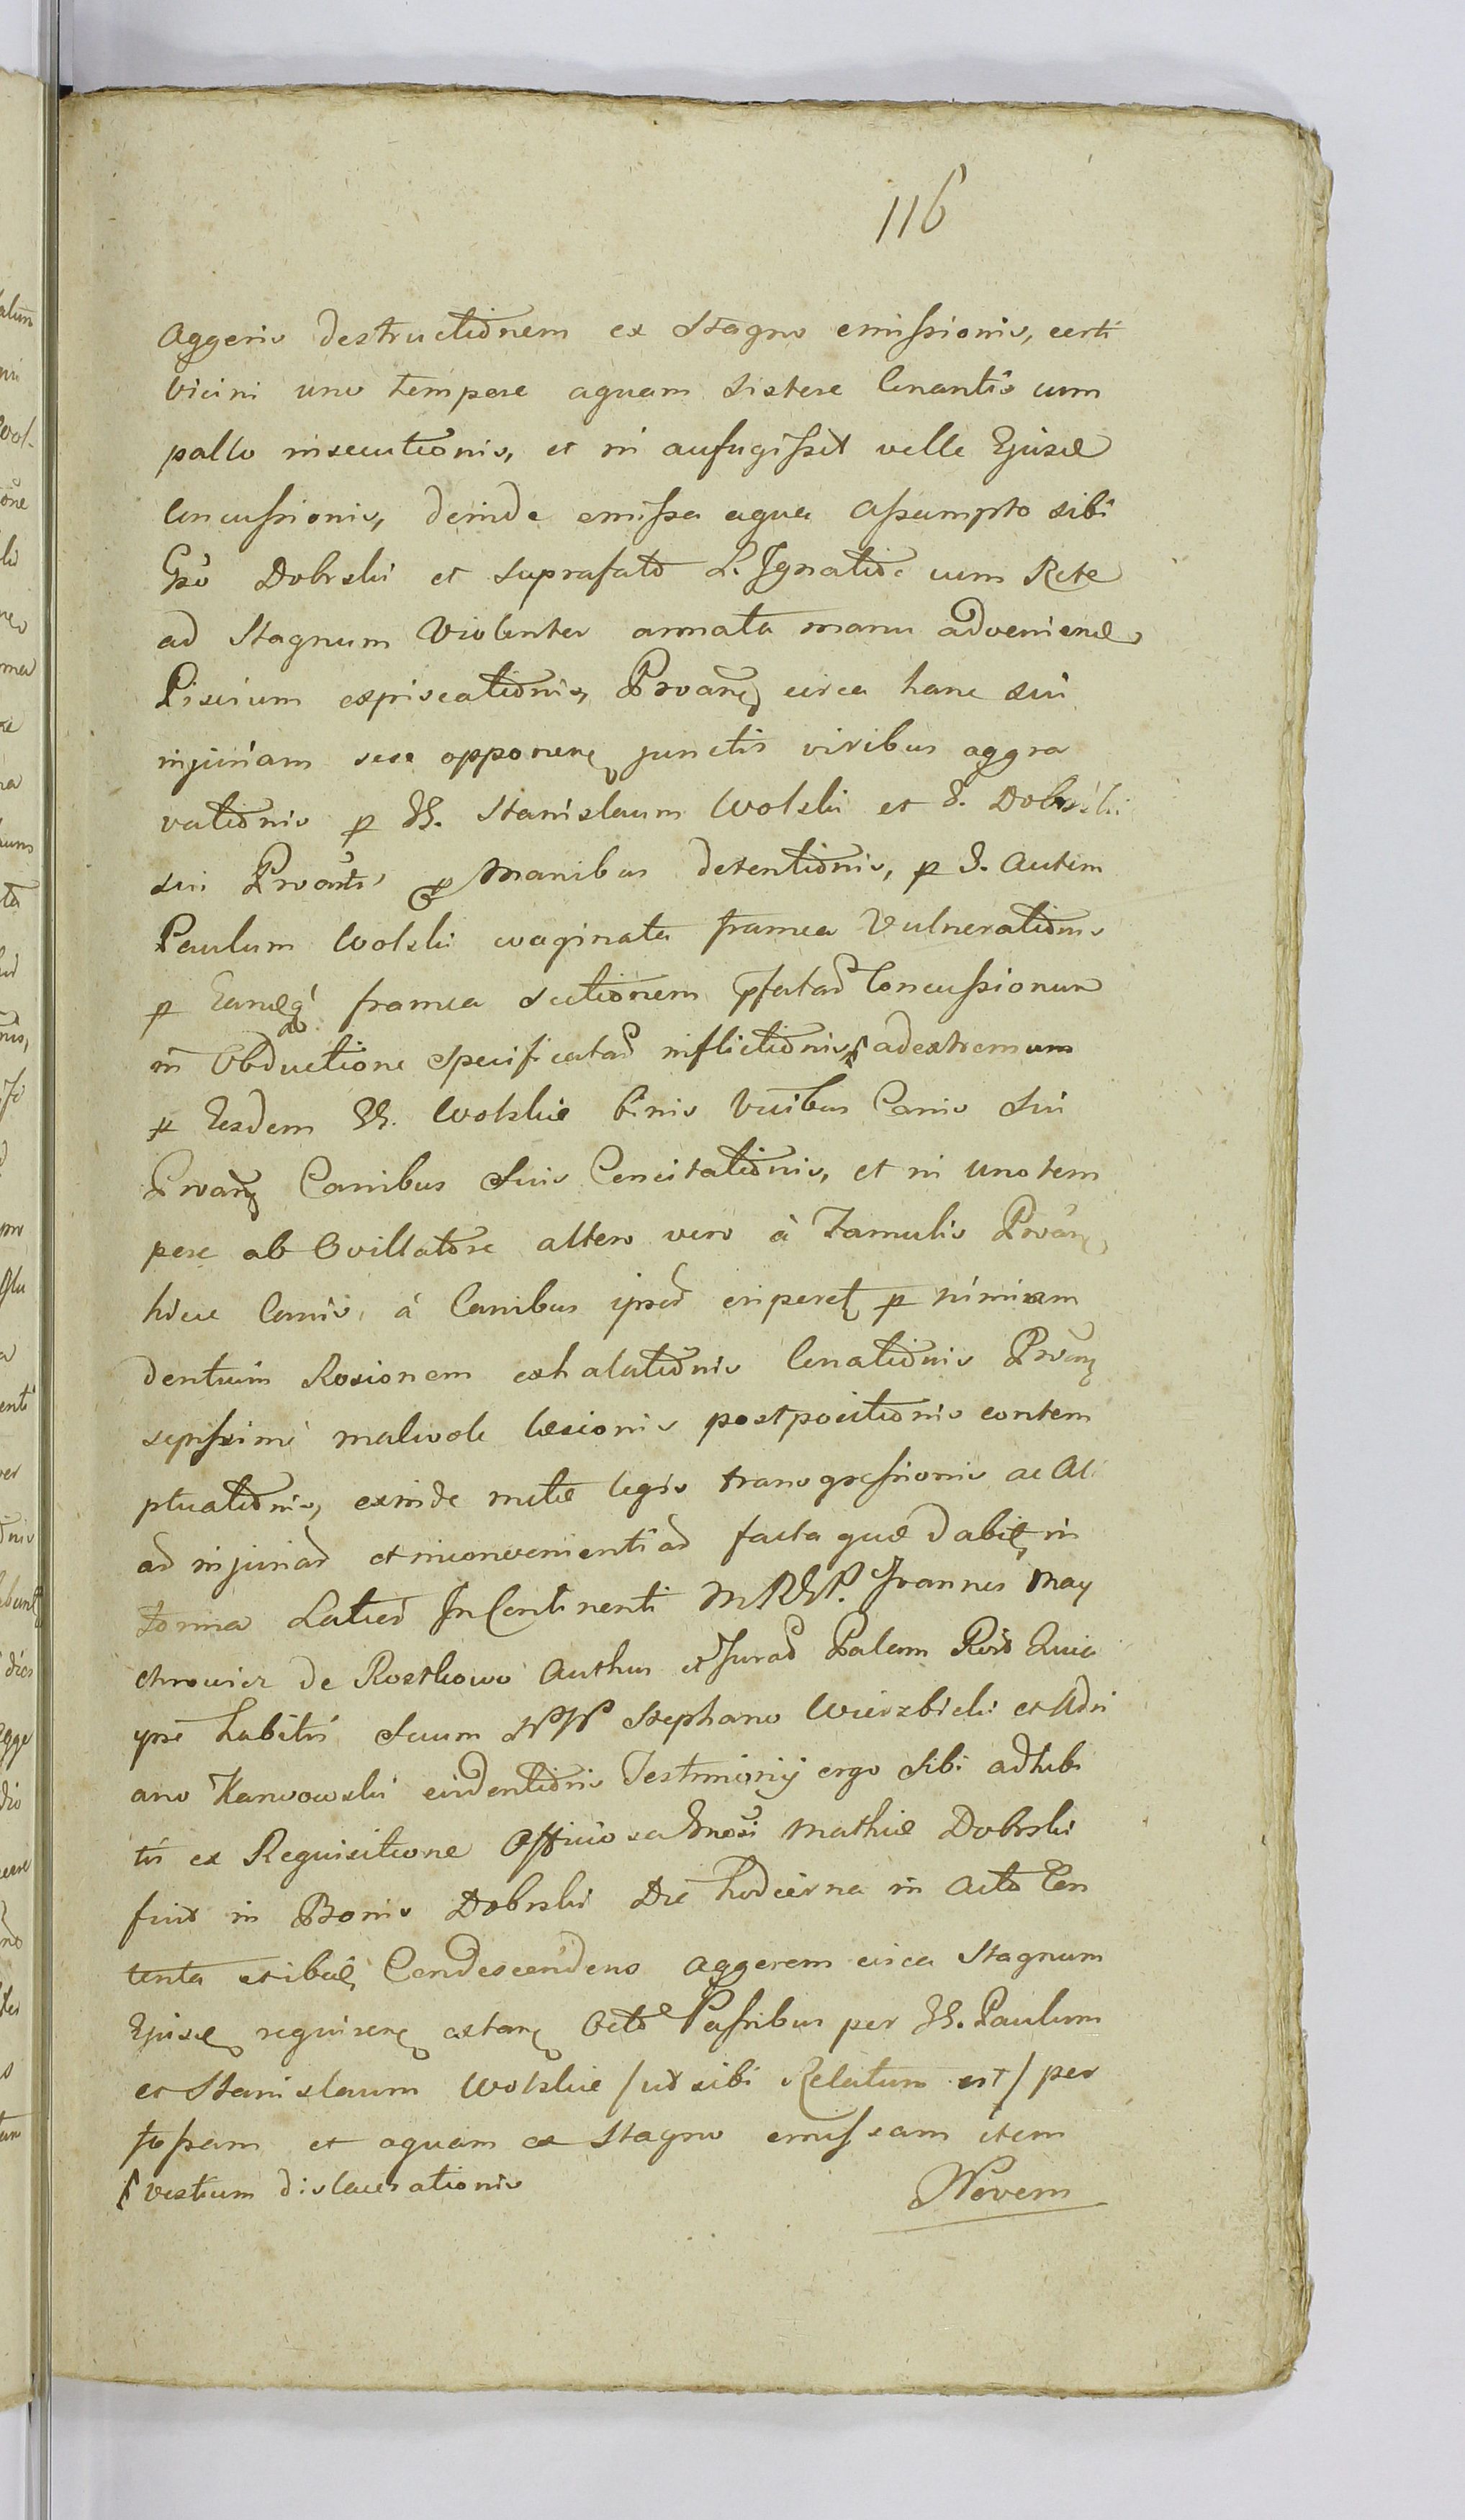 116
Aggeris destructionem ex Stagno emissionis, certi
Vicini uno tempore aquam sistere Conantis cum
pallo insecutionis, et ni aufugisset velle Ejusd
Concussionis, deinde emissa aqua assumpto sibi
Gso Dobrski et suprafato L. Ignatio cum Rete
ad Stagnum Violenter armata manu advenienđ
Piscium expiscationis, Proanŧ circa hanc sui
injuriam sese opponenŧ junctis viribus aggra
vationis p GG. Stanislaum Wolski et G. Dobrski
sui Proanti p Manibus detentionis, p G. Autem
Paulum Wolski evaginata framea Vulnerationis
p Eamđq framea Sectionem pfatađ Concussionum
in Obductione specificatađ inflictionis ad extremum
p Eosdem GG. Wolskie binis Vicibus Canis Sui
Proanŧ Canibus Suis Concitationis, et ni uno tem
pore ab Ovillatore altero vero à Famulis Proanŧ
hicce Canis, à Canibus ipsođ eriperetŧ p nimiam
dentium Rosionem exhalationis Conationis Proanŧ
sepissime malivole læsionis postpositionis contem
ptuationis, exinde multæ legis transgressionis ac Ali
ad injuriađ et inconvenientiađ facta quæ dabitŧ in
Forma Latiođ In Continenti MRGP. Joannes May
chrowicz de Rostkowo Authus et Jurađ Palam Reco Quia
ipse habitis Secum NN Stephano Wierzbicki et Adri
ano Karwowski evidentioris Testimonij ergo Sibi adhibi
tis ex Requisitione Officiosa Gnosi Mathiæ Dobrski
fuit in Bonis Dobrski Die hodierna in Acto Con
tenta et ibidŧ Condescendens Aggerem circa Stagnum
Ejusđ requirenŧ extanŧ Octo Passibus per GG. Paulum
et Stanislaum Wolskie / ut sibi Relatum est / per
fossam et aquam ex Stagno emissam item
vestium dislacerationis
Novem